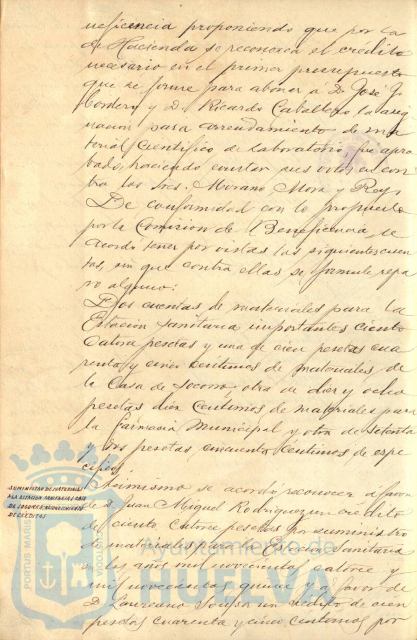 neficencia proponiendo que por la
de Hacienda se reconozca el crédito
necesario en el primer presupuesto
que se forme para abonar a D. José J.
y D. Ricardo Caballero la asig
nación para arrendamiento de ma
terial científico de laboratorio fue apro
bado, haciendo constar sus votos en con
tra los Sres. Morano Mora y Rey,
De conformidad con lo propuesto
por la Comisión de Beneficencia se
acordó tener por vistas las siguientes cuen
tas, sin que contra ellas se formule repa
ro alguno:
Dos cuentas de materiales para la
Estación Sanitaria importantes ciento
catorce pesetas y una de cien pesetas cua
renta y cinco centimos de materiales de
la Casa de Socorro, otra de diez y ocho
pesetas diez centimos de materiales para
la Farmacia Municipal y otra de setenta
y dos pesetas, cincuenta centimos de espe
cificos
Asimismo se acordó reconocer a favor
de D. Juan Miguel Rodriguez un crédito
de ciento catorce pesetas por suministro
de materiales para la Estación Sanitaria
en los años mil novecientos catorce y
mil novecientos quince y a favor de
D. Laureano Sousa un crédito de cien
pesetas cuarenta y cinco centimos por
SUMINISTRO DE MATERIALES
A LA ESTACION SANITARIA Y CASA
DE SOCORRO Y RECONOCIMIENTO
DE CREDITOS
PORTUS MARIS
Ayuntamiento de
HUELVA